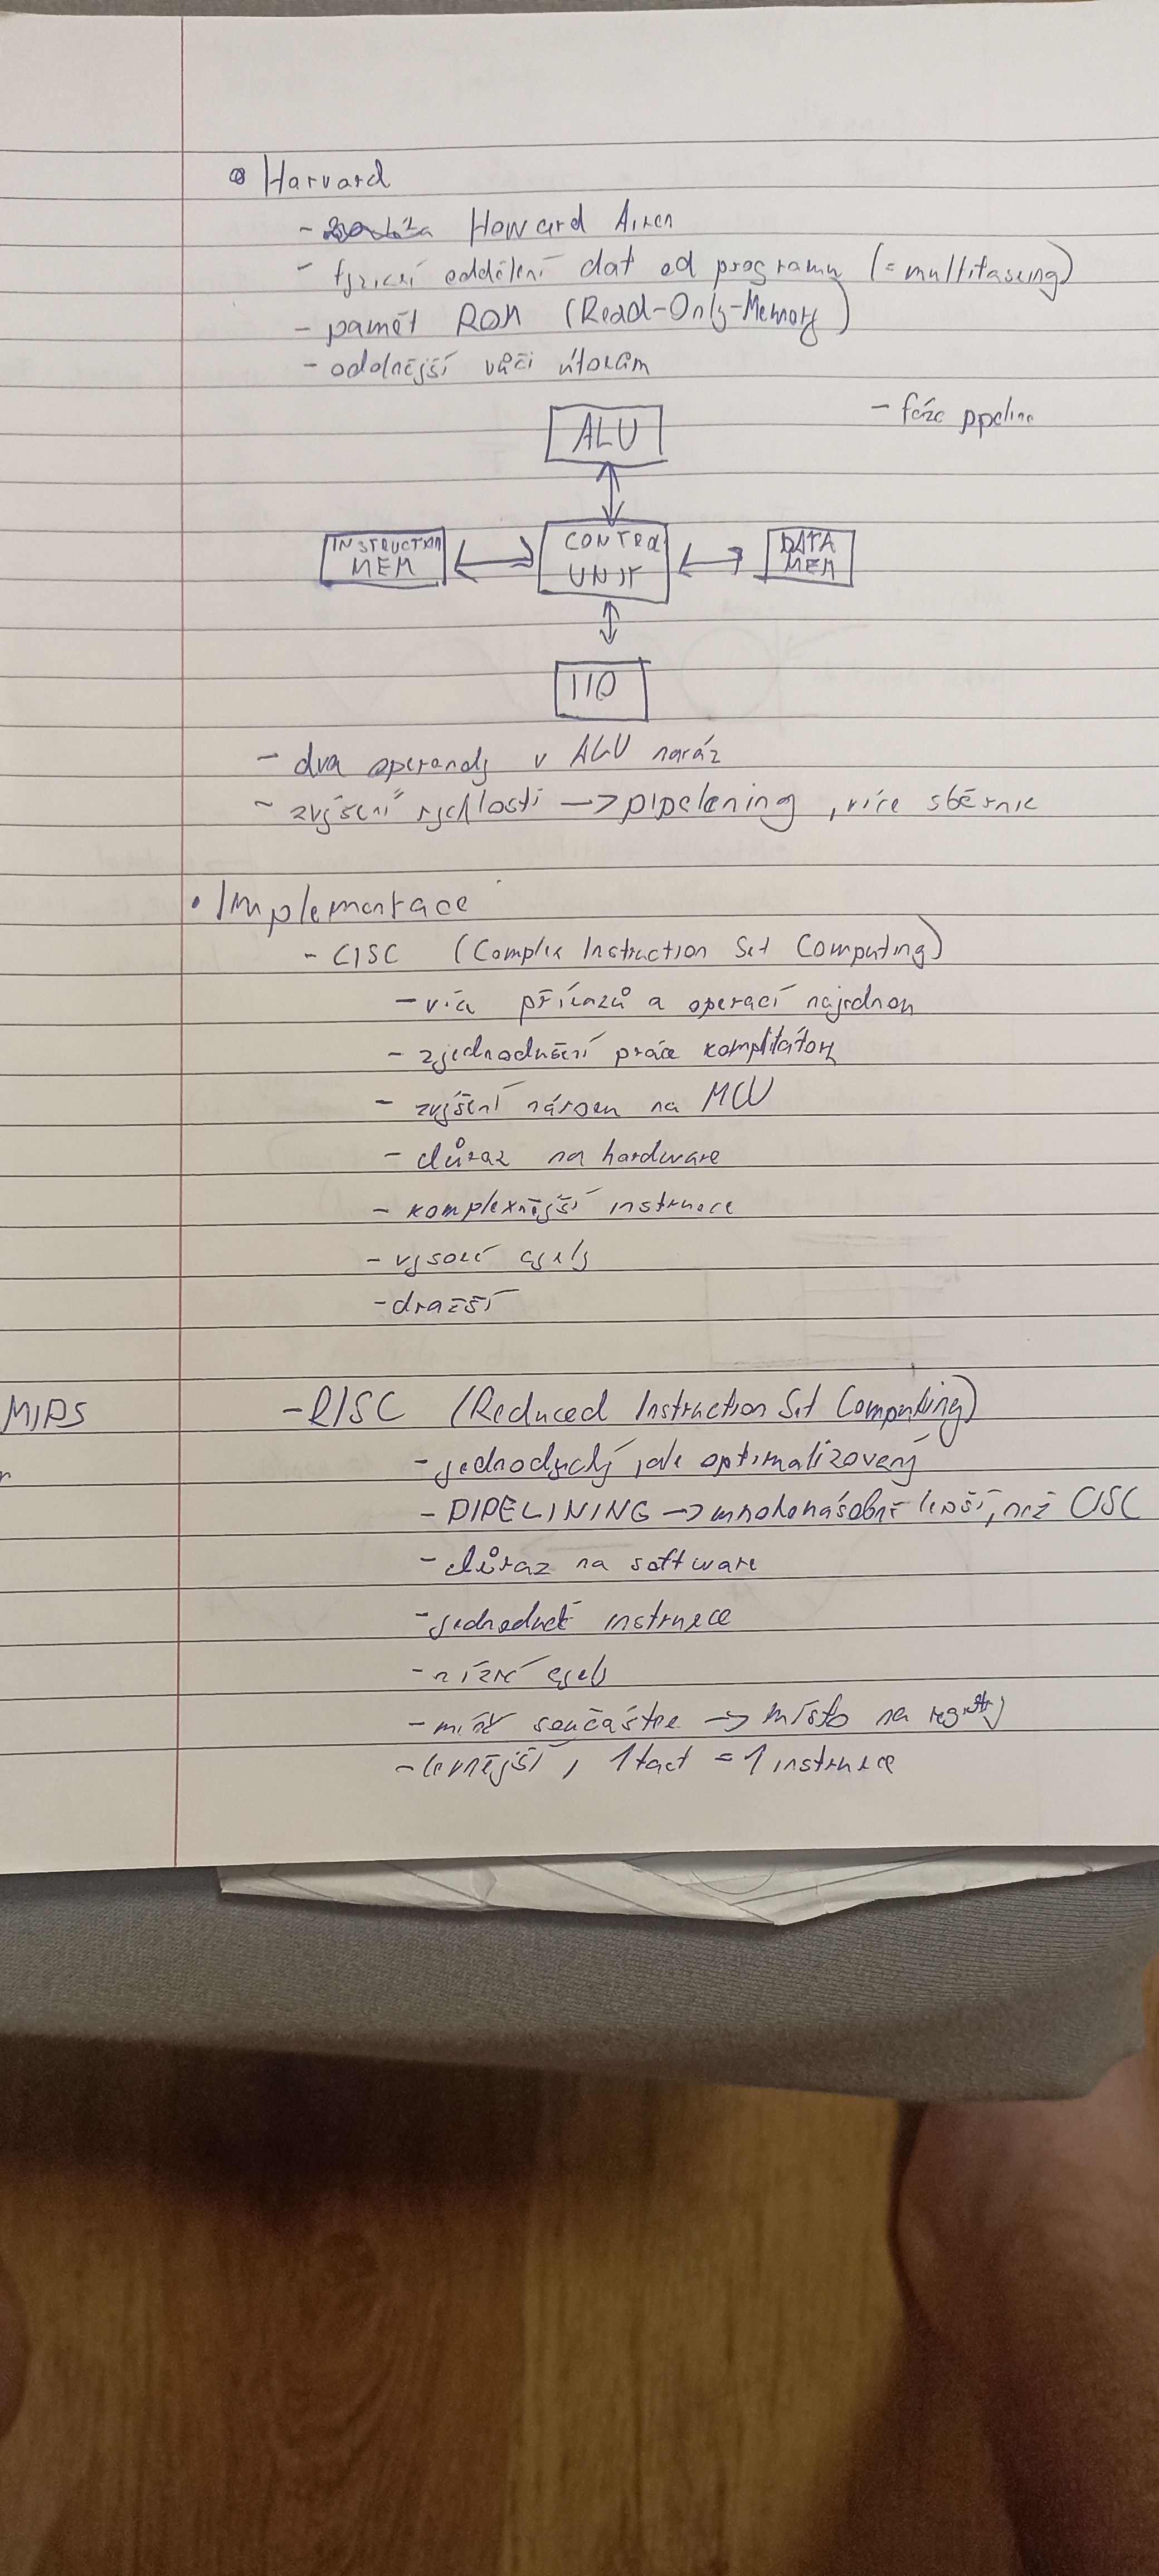 Harvard
- Howard Aiken
- fyzické oddělení dat od programu (= multitasking)
- pamět ROM (Read-Only-Memory)
- odolnější vůči útokům
- fáze pipeline
ALU
INSTRUCTION MEM
CONTROL UNIT
DATA MEM
I/O
- dva operandy v ALU naráz
- zvýšení rychlosti -> pipelening, více sběrnic
• Implementace
- CISC (Complex Instruction Set Computing)
- víc příkazů a operací najednou
- zjednodušení práce kompilátoru
- zvýšení nároku na MCU
- důraz na hardware
- komplexnější instrukce
- vysoké cykly
- dražší
MIPS
- RISC (Reduced Instruction Set Computing)
- jednoduchý, ale optimalizovaný
- PIPELINING -> mnohonásobně lepší, než CISC
- důraz na software
- jednoduché instrukce
- nízké cykly
- míň součástek -> místo na registry
- levnější, 1 takt = 1 instrukce